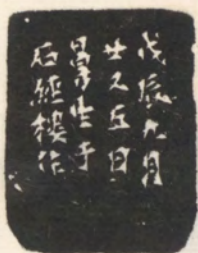 戊辰九月
廿又五日
曼生于
石經樓作